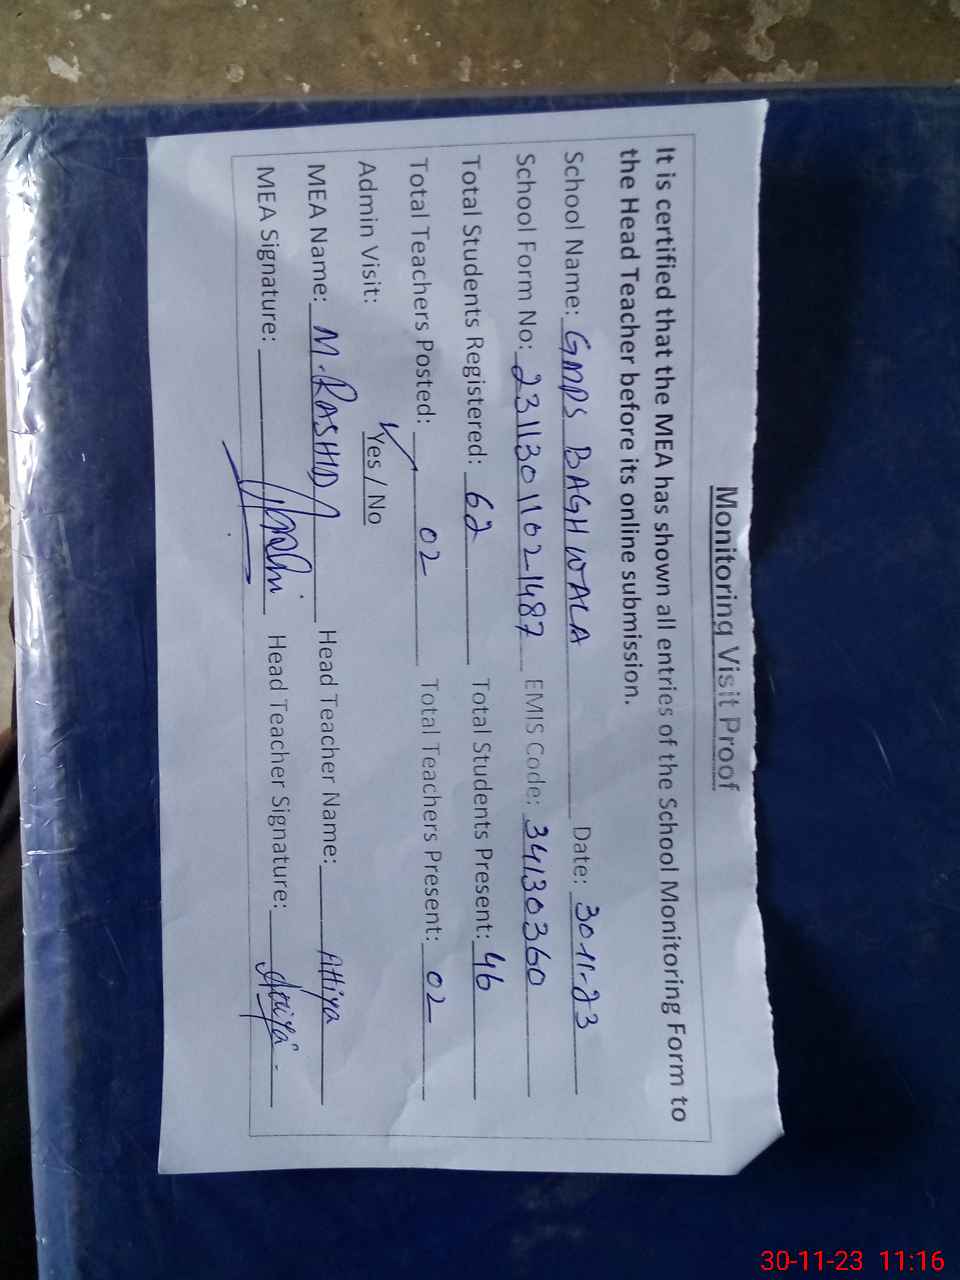 Monitoring Visit Proof
It is certified that the MEA has shown all entries of the School Monitoring Form to
the Head Teacher before its online submission.
School Name: GMPS BAGH WALA Date: 30-11-23
School Form No: 23113011021487 EMIS Code: 34130360
Total Students Registered: 62 Total Students Present: 46
Total Teachers Posted: 02 Total Teachers Present: 02
Admin Visit: Yes / No
MEA Name: M. RASHID Head Teacher Name: Attiya
MEA Signature: Head Teacher Signature: Attiya
30-11-23 11:16